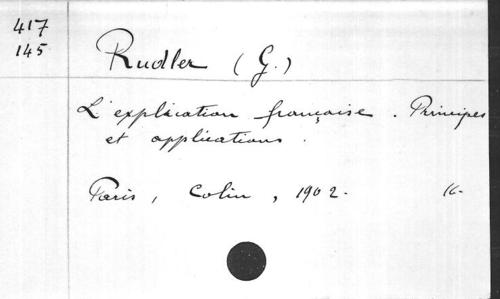 417
145
Rudler (G.)
L'explication française. Principes
et applications.
Paris, Colin, 1902. 16-